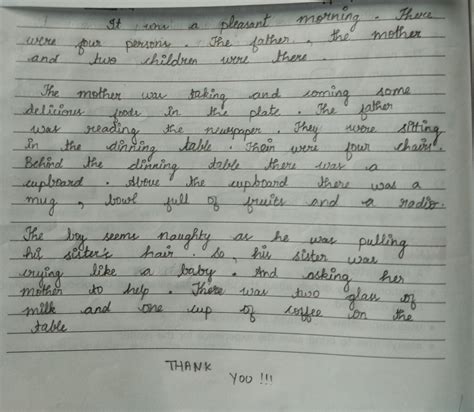 It was a pleasant morning. There
were four persons. The father, the mother
and two children were there.
The mother was taking and coming some
delicious foods in the plate. The father
was reading the newspaper. They were sitting
in the dinning table. Their were four chairs.
Behind the dinning table there was a
cupboard. Above the cupboard there was a
mug, bowl full of fruits and a radio.
The boy seems naughty as he was pulling
his sister's hair. So, his sister was
crying like a baby. And asking her
mother to help. There was two glass of
milk and one cup of coffee on the
table
THANK
YOU !!!